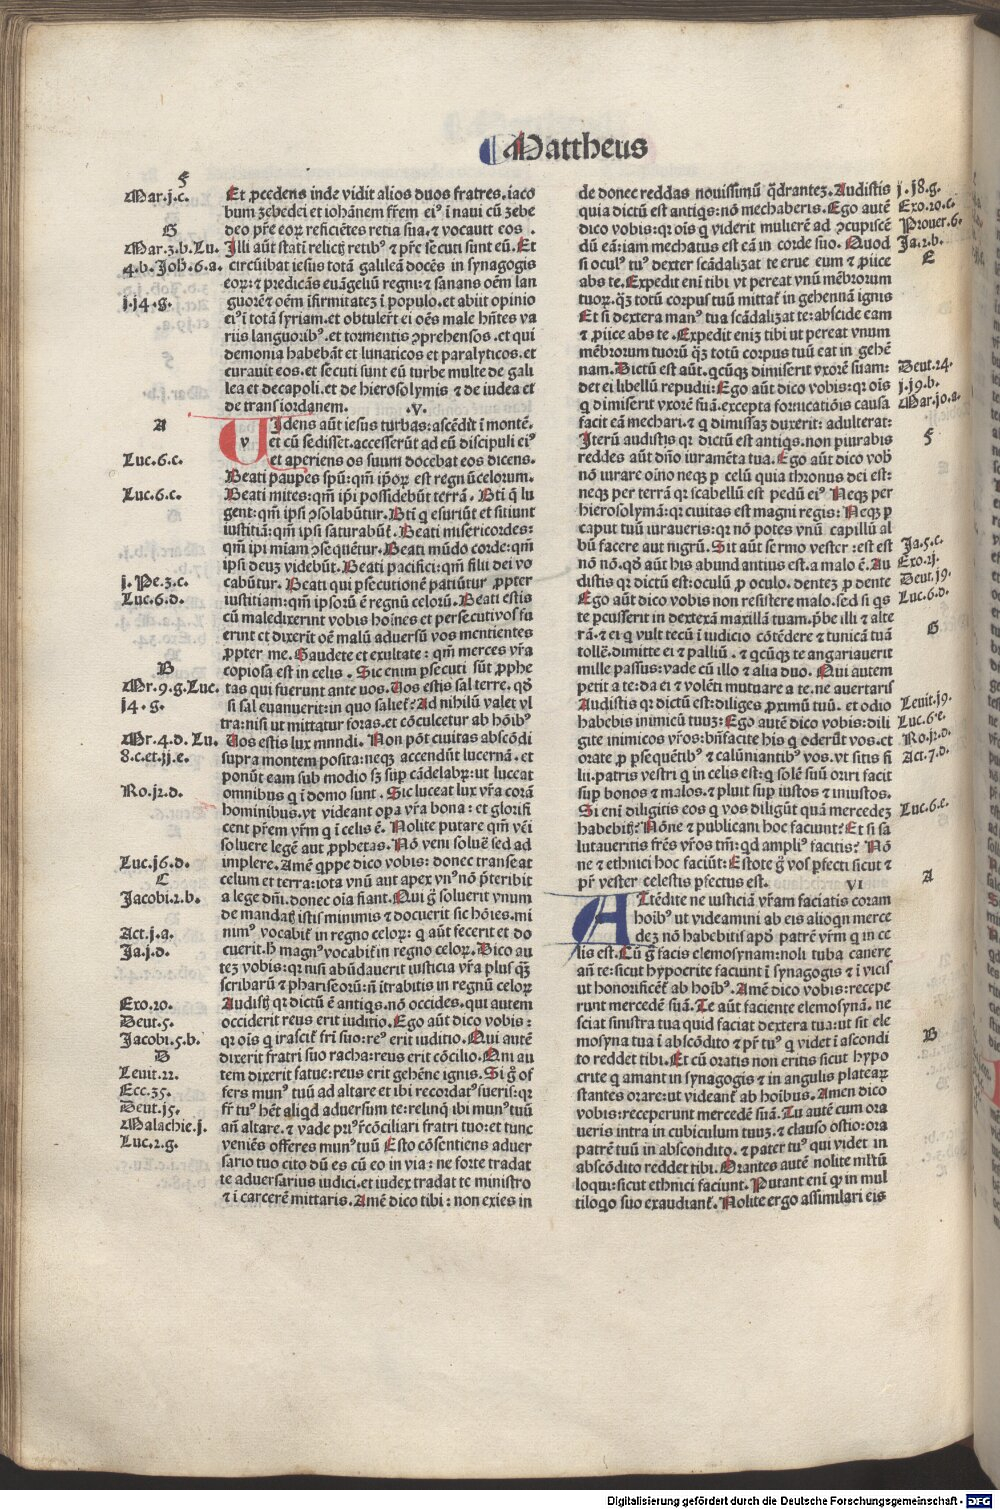 Mattheus
F
Mar.j.c.
G
Mar.3.b.Lu.
4.b.Joh.6.a.
j.j4.g.
A
Luc.6.c.
Luc.6.c.
j.Pe.3.c.
Luc.6.d.
B
Mr.9.g.Luc.
j4.g.
Mr.4.d.Lu.
8.c.et.jj.e.
Ro.j2.d.
Luc.j6.d.
C
Jacobi.2.b.
Act.j.a.
Ja.j.d.
Exo.20.
Deut.5.
Jacobi.5.b.
D
Leuit.22.
Ecc.35.
Deut.j5.
Malachie.j.
Luc.2.g.
Et ꝓcedens inde vidit alios duos fratres.iaco
bum zebedei et iohānem frēm eiꝰ ī naui cū zebe
deo pr̄e eoꝝ reficiētes retia sua.⁊ vocauit eos .
Illi aūt statī relictꝭ retibꝰ ⁊ pr̄e secuti sunt eū. Et
circūibat iesus totā galileā docēs in synagogis
eoꝝ: ⁊ predicās euāgeliū regni: ⁊ sanans oēm lan
guorē ⁊ oēm īfirmitatez ī populo.et abiit opinio
eiꝰ ī totā syriam.et obtulerūt ei oēs male hn̄tes va
riis languoribꝰ.et tormentis ꝯprehensos.et qui
demonia habebāt et lunaticos et paralyticos.et
curauit eos.et secuti sunt eū turbe multe de gali
lea et decapoli.et de hierosolymis ⁊ de iudea et
de trans iordanem. .V.
Uidens aūt iesus turbas: ascēdit ī montē.
et cū sedisset.accesserūt ad eū discipuli eiꝰ
et aperiens os suum docebat eos dicens.
Beati paupes spū: qm̄ ip̄oꝝ est regnū celorum.
Beati mites: qm̄ ip̄i possidebūt terrā . Bti q̄ lu
gent: qm̄ ipsi ꝯsolabūtur. Bti q̄ esuriūt et sitiunt
iustitiā: qm̄ ipsi saturabūt᷑. Beati misericordes:
qm̄ ipi miam ꝯsequētur. Beati mūdo corde: qm̄
ipsi deuz videbūt. Beati pacifici: qm̄ filii dei vo
cabūtur. Beati qui ꝑsecutionē patiūtur ꝓpter
iustitiam: qm̄ ipsorū ē regnū celorū. Beati estis
cū maledixerint vobis hoīnes et persecuti vos fu
erint et dixerit oē malū aduersū vos mentientes
ꝓpter me. Gaudete et exultate : qm̄ merces vr̄a
copiosa est in celis . Sic enim ꝑsecuti sūt ꝓphe
tas qui fuerunt ante uos. Uos estis sal terre. qd̄
si sal euanuerit: in quo saliet᷑? Ad nihilū valet vl
tra: nisi ut mittatur foras.et cōculcetur ab hoībꝰ
Uos estis lux mnndi. Non pōt ciuitas abscōdi
supra montem posita: neqꝫ accendūt lucernā.et
ponūt eam sub modio sꝫ sup cādelabꝝ: ut luceat
omnibus q ī domo sunt . Sic luceat lux vr̄a corā
hominibus.vt videant opa vr̄a bona : et glorifi
cent pr̄em vr̄m q ī celis ē. Nolite putare qm̄ vēi
soluere legē aut ꝓphetas. Nō veni soluē sed ad
implere. Amē qꝑpe dico vobis: donec transeat
celum et terra: iota vnū aut apex vnꝰ nō p̄teribit
a lege dm̄i.donec oīa fiant. Qui g̊ soluerit vnum
de mandatꝭ istis minimis ⁊ docuerit sic hōies.mi
nimꝰ vocabit᷑ in regno celoꝝ: q aūt fecerit et do
cuerit.h̄ magnꝰ vocabit᷑ in regno celoꝝ. Dico au
tez vobis: qꝛ nisi abūdauerit iusticia vr̄a plus qꝫ
scribarū ⁊ phariseorū: nō ītrabitis in regnū celoꝝ
Audistꝭ qꝛ dictū ē antiqs.nō occides.qui autem
occiderit reus erit iuditio. Ego aūt dico vobis :
qꝛ oīs q irascit᷑ frī suo: reꝰ erit iuditio. Qui autē
dixerit fratri suo racha: reus erit cōcilio. Qni au
tem dixerit fatue: reus erit gehēne ignis. Si g̊ of
fers munꝰ tuū ad altare et ibi recordatꝰ fueris: qꝛ
fr̄ tuꝰ hēt aliqd aduersum te: relinq̄ ibi munꝰ tuū
an̄ altare. ⁊ vade priꝰ rēcōciliari fratri tuo: et tunc
veniēs offeres munꝰ tuū Esto cōsentiens aduer
sario tuo cito dū es cū eo in via : ne forte tradat
te aduersarius iudici.et iudex tradat te ministro
⁊ ī carcerē mittaris. Amē dico tibi : non exies in
de donec reddas nouissimū q̄drantez. Audistis
quia dictū est antiqs: nō mechaberis. Ego autē
dico vobis: qꝛ oīs q viderit mulierē ad ꝯcupiscē
dū eā: iam mechatus est eā in corde suo. Quod
si oculꝰ tuꝰ dexter scādalizat te erue eum ⁊ ꝓiice
abs te. Expedit enī tibi vt pereat vnū mēbrorum
tuoꝝ. qꝫ totū corpus tuū mittat᷑ in gehennā ignis
Et si dextera manꝰ tua scādalizat te: abscide eam
⁊ ꝓiice abs te . Expedit eniz tibi ut pereat vnum
mēbrorum tuorū qꝫ totū corpus tuū eat in gehē
nam. Dictū est aūt. qcūqꝫ dimiserit vxorē suam:
det ei libellū repudii: Ego aūt dico vobis: qꝛ oīs
q dimiserit vxorē suā.excepta fornicatiōis causa
facit eā mechari. ⁊ q dimissaz duxerit: adulterat:
Iterū audistis qꝛ dictū est antiqs.non piurabis
reddes aūt dn̄o iuramēta tua. Ego aūt dico vob
nō iurare oīno neqꝫ ꝑ celū quia thronus dei est:
neqꝫ per terrā qꝛ scabellū est pedū eiꝰ Neqꝫ per
hierosolymā: qꝛ ciuitas est magni regis: Neqꝫ ꝑ
caput tuū iuraueris: qꝛ nō potes vnū capillū al
bū facere aut nigrū. Sit aūt sermo vester : est est
nō nō. qd̄ aūt his abundantius est.a malo ē. Au
distis qꝛ dictū est: oculū ꝓ oculo. dentez ꝓ dente
Ego aūt dico vobis non resistere malo. sed si qs
te ꝑcusserit in dexterā maxillā tuam. p̄be illi ⁊ alte
rā. ⁊ ei q vult tecū ī iudicio cōtēdere ⁊ tunicā tuā
tollē.dimitte ei ⁊ palliū . ⁊ qcūqꝫ te angariauerit
mille passus: vade cū illo ⁊ alia duo. Qui autem
petit a te: da ei ⁊ volēti mutuare a te.ne auertaris
Audistis qꝛ dictū est: diliges ꝓximū tuū. et odio
habebis inimicū tuuꝫ: Ego autē dico vobis: dili
gite inimicos vr̄os: bn̄facite his q oderūt vos.et
orate ꝓ ꝑsequētibꝰ ⁊ calūniantibꝰ vos.vt sitis fi
lii.patris vestri q in celis est: q solē suū oriri facit
sup bonos ⁊ malos. ⁊ pluit sup iustos ⁊ iniustos.
Si enī diligitis eos q vos diligūt quā mercedez
habebitꝭ? Nōne ⁊ publicani hoc faciunt? Et si sa
lutaueritis fr̄es vr̄os tm̄: qd ampliꝰ facitis? Nō
ne ⁊ ethnici hoc faciūt: Estote g̊ vos ꝑfecti sicut ⁊
pr̄ vester celestis ꝑfectus est. VI
Attēdite ne iusticiā vr̄am faciatis coram
hoībꝰ ut videamini ab eis alioqn merce
dez nō habebitis apd patrē vr̄m q in ce
lis est. Cū g̊ facis elemosynam: noli tuba canere
an̄ te: sicut hypocrite faciunt ī synagogis ⁊ ī vicis
ut honorificēt᷑ ab hoībꝰ. Amē dico vobis: recepe
runt mercedē suā. Te aūt faciente elemosynā. ne
sciat sinistra tua quid faciat dextera tua: ut sit ele
mosyna tua ī abscōdito ⁊ pr̄ tuꝰ q videt ī ascondi
to reddet tibi. Et cū oratis non eritis sicut hypo
crite q amant in synagogis ⁊ in angulis plateaꝝ
stantes orare: ut videant᷑ ab hoībus. Amen dico
vobis: receperunt mercedē suā. Tu autē cum ora
ueris intra in cubiculum tuuꝫ. ⁊ clauso ostio: ora
patrē tuū in abscondito. ⁊ pater tuꝰ qui videt in
abscōdito reddet tibi. Orantes autē nolite ml̄tū
loqui: sicut ethnici faciunt. Putant enī qꝛ in mul
tiloqo suo exaudiant᷑. Nolite ergo assimulari eis
j.j8.g.
Exo.20.c.
Prouer.6.
Ja.2.b.
E
Deut.24.
j.j9.b.
Mar.j0.a.
F
Ja.5.c.
Exo.2j.
Deut.j9.
Luc.6.d.
G
Leuit.j9.
Luc.6.e.
Ro.j2.d.
Act.7.d.
Luc.6.e.
A
B
Digitalisierung gefördert durch die Deutsche Forschungsgemeinschaft - DFG